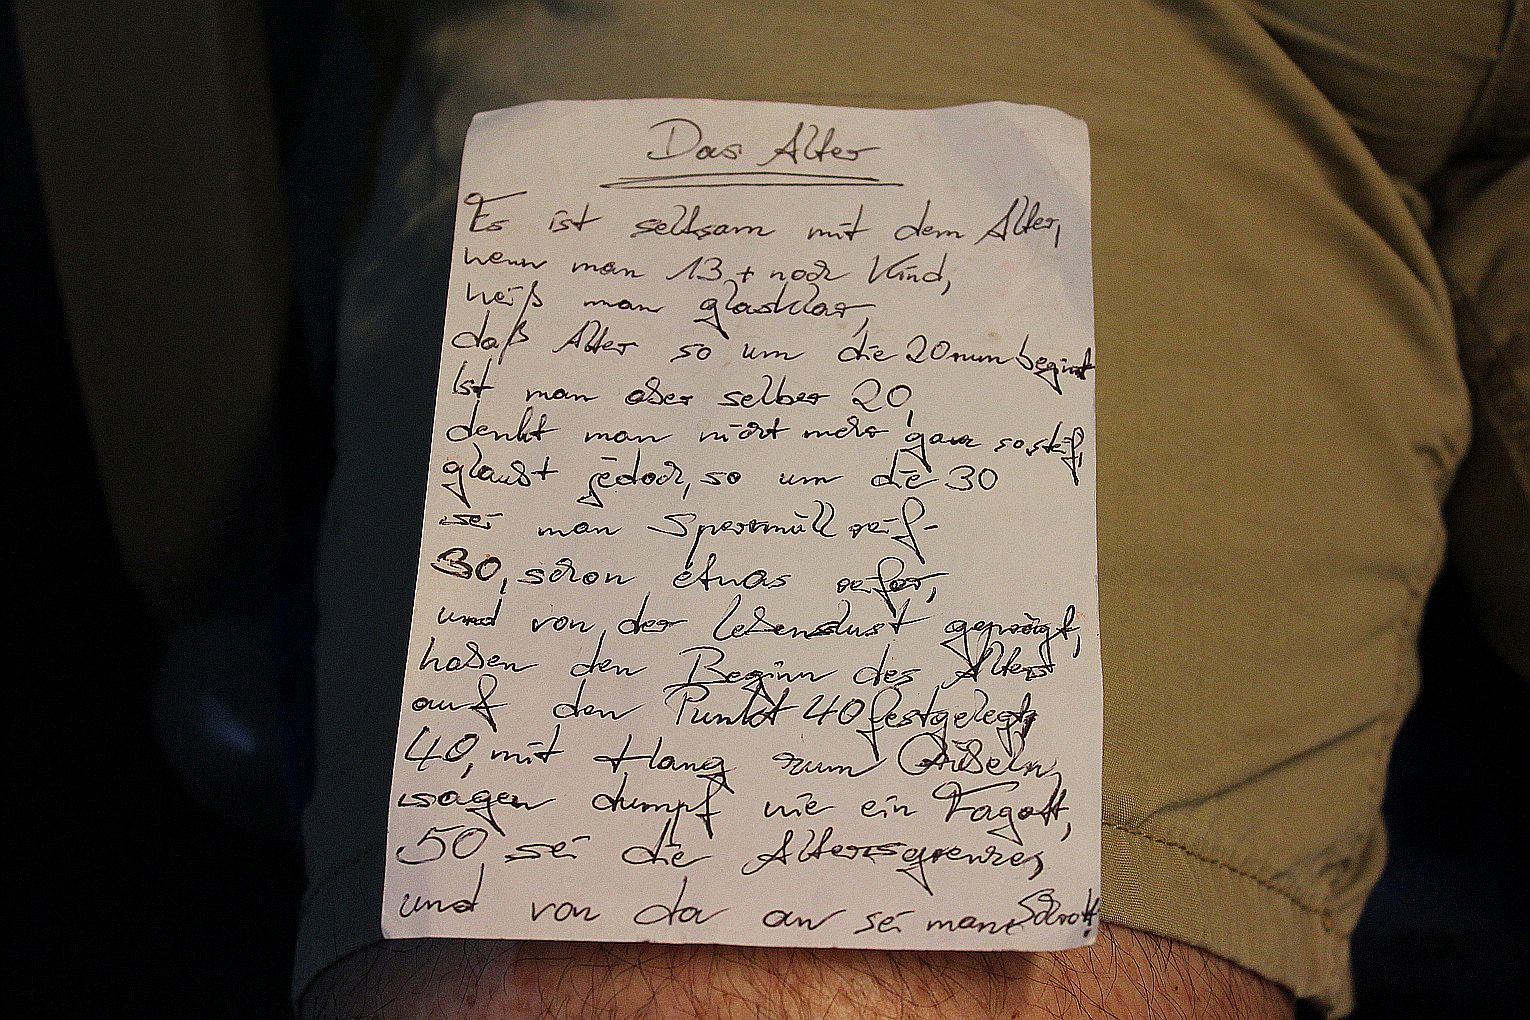 Das Alter
Es ist seltsam mit dem Alter,
wenn man 13 + noch Kind,
weiß man glasklar,
daß Alter so um die 20 nun beginnt
Ist man aber selber 20,
denkt man nicht mehr ganz so steif,
glaubt jedoch, so um die 30
sei man Sperrmüll reif -
30, schon etwas reifer,
und von der Lebenslust geprägt,
haben den Beginn des Alters
auf den Punkt 40 festgelegt,
40, mit Hang zum Grübeln,
sagen dumpf wie ein Fagott,
50 sei die Altersgrenze,
und von da an sei man Schrott!